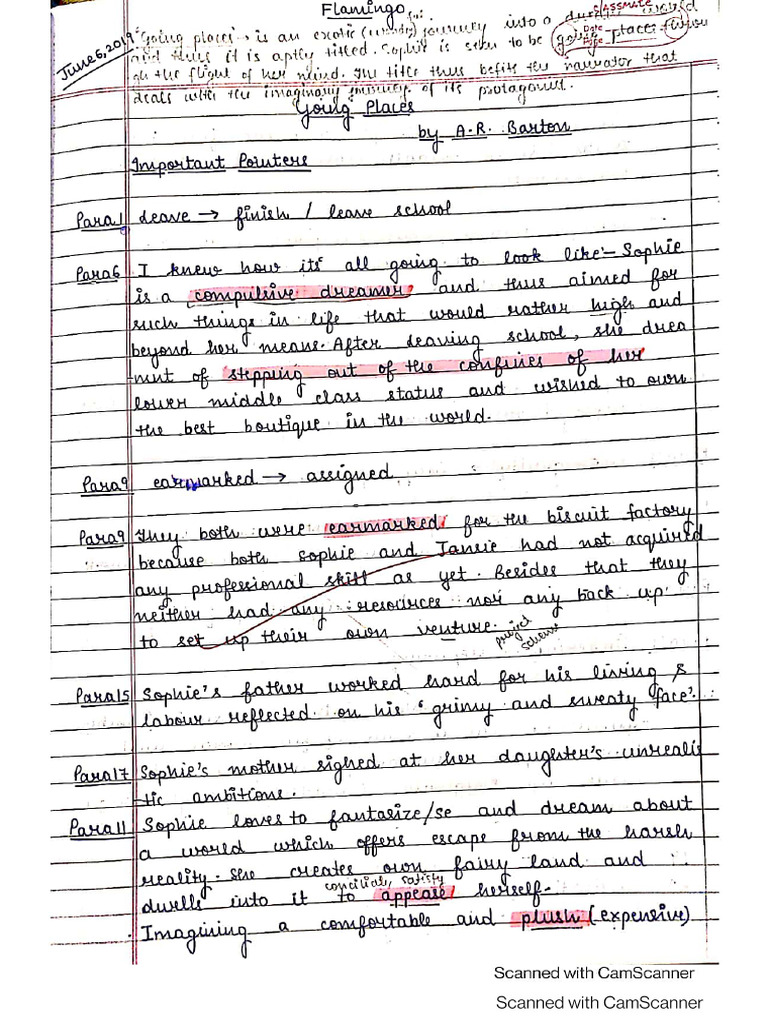 Flamingo
June 6, 2019
"Going places" is an exotic journey into a
and thus it is aptly titled. Sophie is seen to be going places
on the flight of her mind. The title thus befits the narrator that
deals with the imaginary journey of its protagonist.
Going Places
by A.R. Barton
Important Pointers
Para 1 leave → finish / leave school
Para 6 I knew how it's all going to look like - Sophie
is a compulsive dreamer and thus aimed for
such things in life that would rather high and
beyond her means. After leaving school, she drea
mnt of stepping out of the confines of her
lower middle class status and wished to own
the best boutique in the world.
Para 9 earmarked → assigned
Para 9 They both were earmarked for the biscuit factory
because both Sophie and Jansie had not acquired
any professional skill as yet. Besides that they
neither had any resources nor any back up
to set up their own venture. project
Para 15 Sophie's father worked hard for his living &
labour reflected on his 'grimy and sweaty face'.
Para 17 Sophie's mother sighed at her daughter's unrealis
tic ambitions.
Para 11 Sophie loves to fantasize/se and dream about
a world which offers escape from the harsh
reality. She creates own fairy land and
conciliate, satisfy
dwells into it to appease herself.
Imagining a comfortable and plush (expensive)
Scanned with CamScanner
Scanned with CamScanner